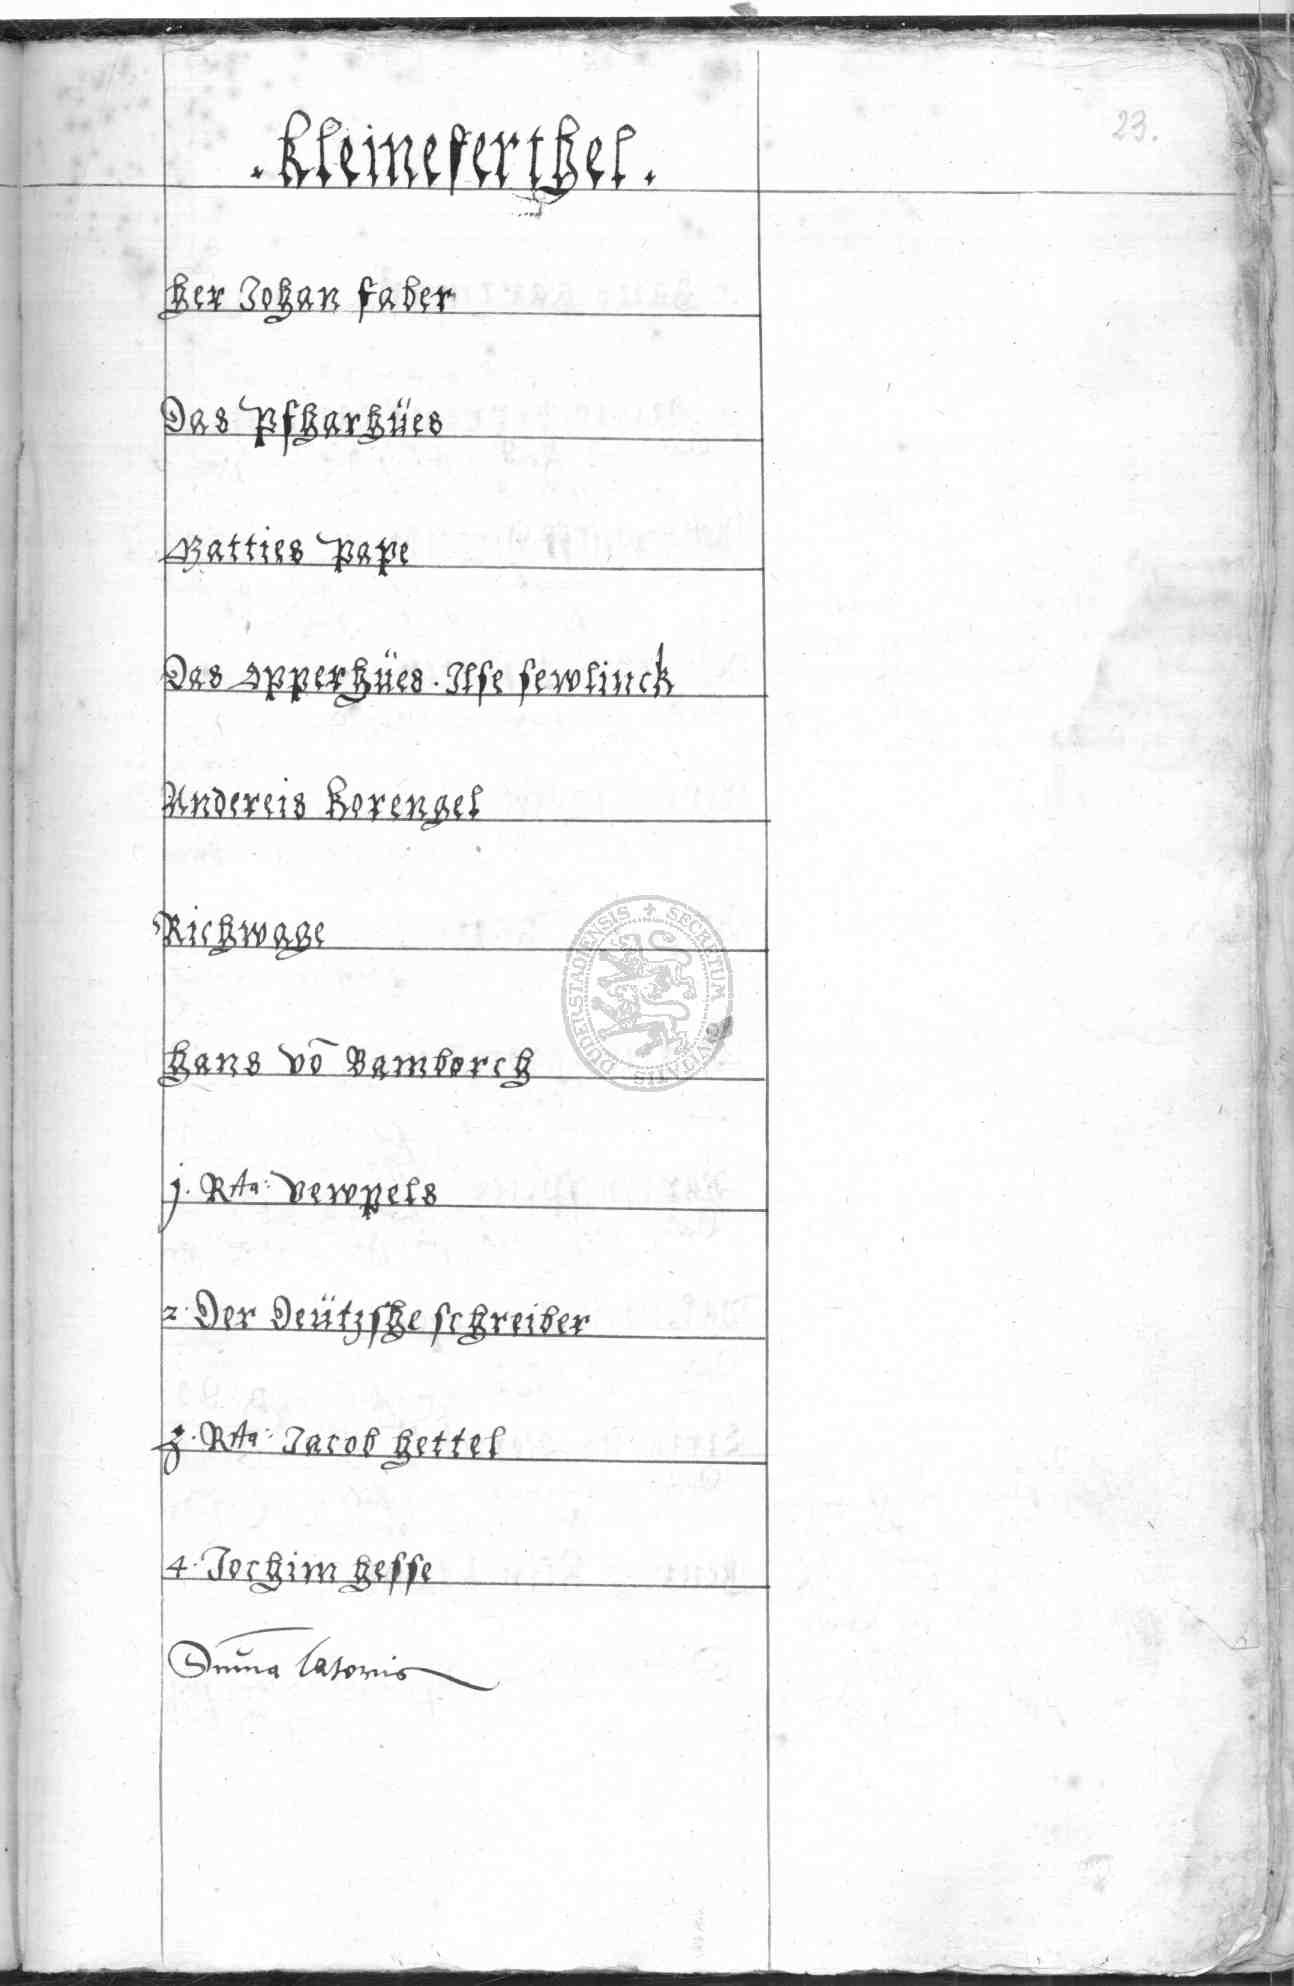 23.
. Kleineferthel .
her Johan faber
Das Pfharhües
Matties Pape
Das Opperhües . Ilse sewlinck
Andereis Korengel
Richwage
Hans vō Bamborch
j. Rta: vewpels
2. Der Deützshe schreiber
3. Rta: Jacob hettel
4. Jochim hesse
Suma latoris
SECRETUM CIVITATIS DUDERSTADIENSIS